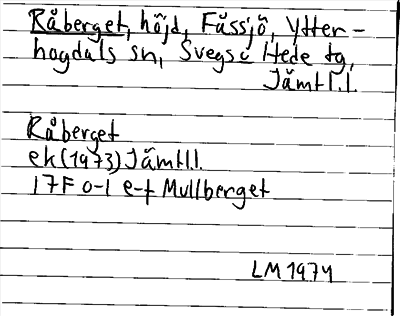 Råberget, höjd, Fåssjö, Ytter-
hogdals sn, Svegs o Hede tg,
Jämtl.l.
Råberget
ek (1973) Jämtl.l.
17F 0-1 e-f Mullberget
LM 1974